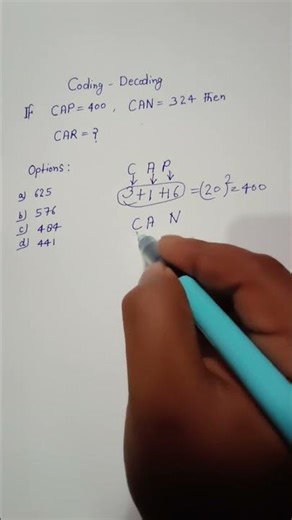 Coding - Decoding
If CAP=400, CAN=324 Then
CAR=?
Options:
a) 625
b) 576
c) 484
d) 441
C A P
3+1+16 =(20)²=400
C A N